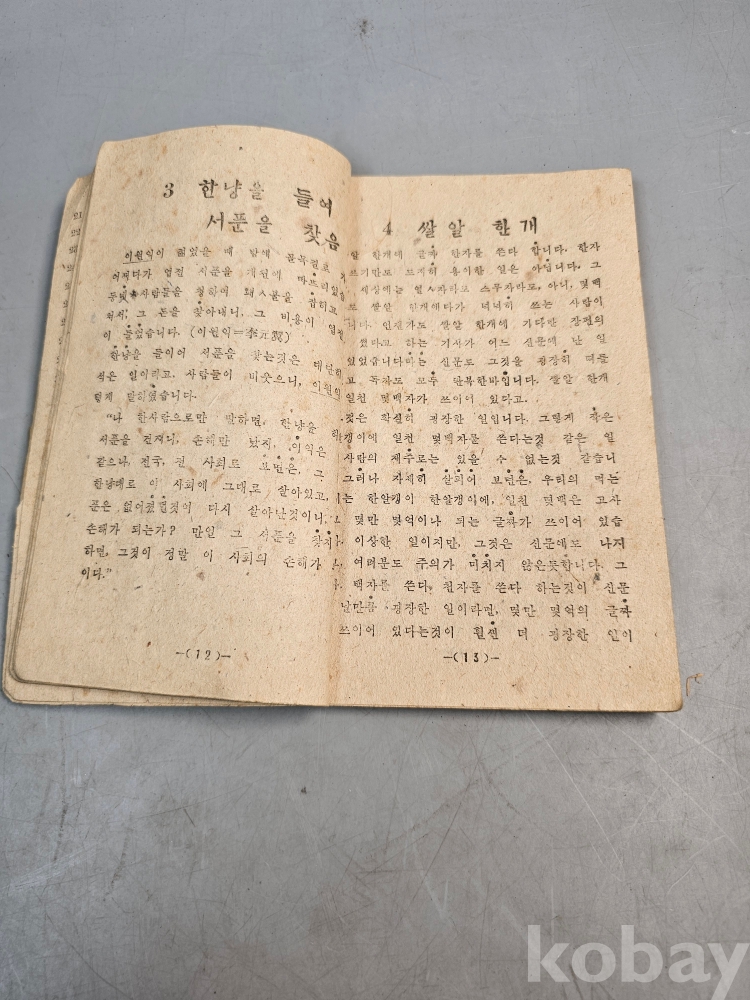 3 한냥을 들여
서푼을 찾음
이원익이 젊었을 때 밤에 골목길로
어쩌다가 엽전 서푼을 개천에 빠뜨리었습
동네 사람들을 청하여 홰ㅅ불을 잡히고
쳐서, 그 돈을 찾아내니, 그 비용이 엽전
이 들었습니다. (이원익=李元翼)
한냥을 들이어 서푼을 찾는것은
은 일이라고, 사람들이 비웃으니, 이원익
렇게 말하였습니다.
“나 한사람으로만 말하면, 한냥을
서푼을 건져니, 손해만 났지, 이익은
같으나, 전국, 전 사회로 보면은, 그
한냥대로 이 사회에 그대로 살아있고,
푼은 없어졌던것이 다시 살아난것이니,
손해가 되는가? 만일 그 서푼을 찾지
하면, 그것이 정말 이 사회의 손해가
이다.”
—(12)—
4 쌀알 한개
알 한개에 글자 한자를 쓴다 합니다. 한자
쓰기만도 뜨저히 용이한 일은 아닙니다. 그
세상에는 열ㅅ자라도 스무자라도, 아니, 몇백
로 쌀알 한개에다가 넉넉히 쓰는 사람이
니다. 인젠가도 쌀알 한개에 기다란 장편의
썼다고 하는 기사가 어느 신문에 난 일
있었습니다하는 신문도 그것을 굉장히 떠들
고 독자도 모두 탄복한바입니다. 쌀알 한개
일천 몇백자가 쓰이어 있다고.
것은 확실히 굉장한 일입니다. 그렇게 작은
갱이에 일천 몇백자를 쓴다는것 같은 일
사만의 재주로는 있을 수 없는것 같습니
그러나 자세히 살피어 보면은, 우리의 먹는
는 한알갱이 한알갱이에, 일천 몇백은 고사
몇만 몇억이나 되는 글짜가 쓰이어 있습
이상한 일이지만, 그것은 신문에도 나지
여러분도 주의가 미치지 않은못합니다. 그
백자를 쓴다, 천자를 쓴다 하는것이 신문
날만큼 굉장한 일이라면, 몇만 몇억의 글짜
쓰이어 있다는것이 훨씬 더 굉장한 일이
—(13)—
kobay